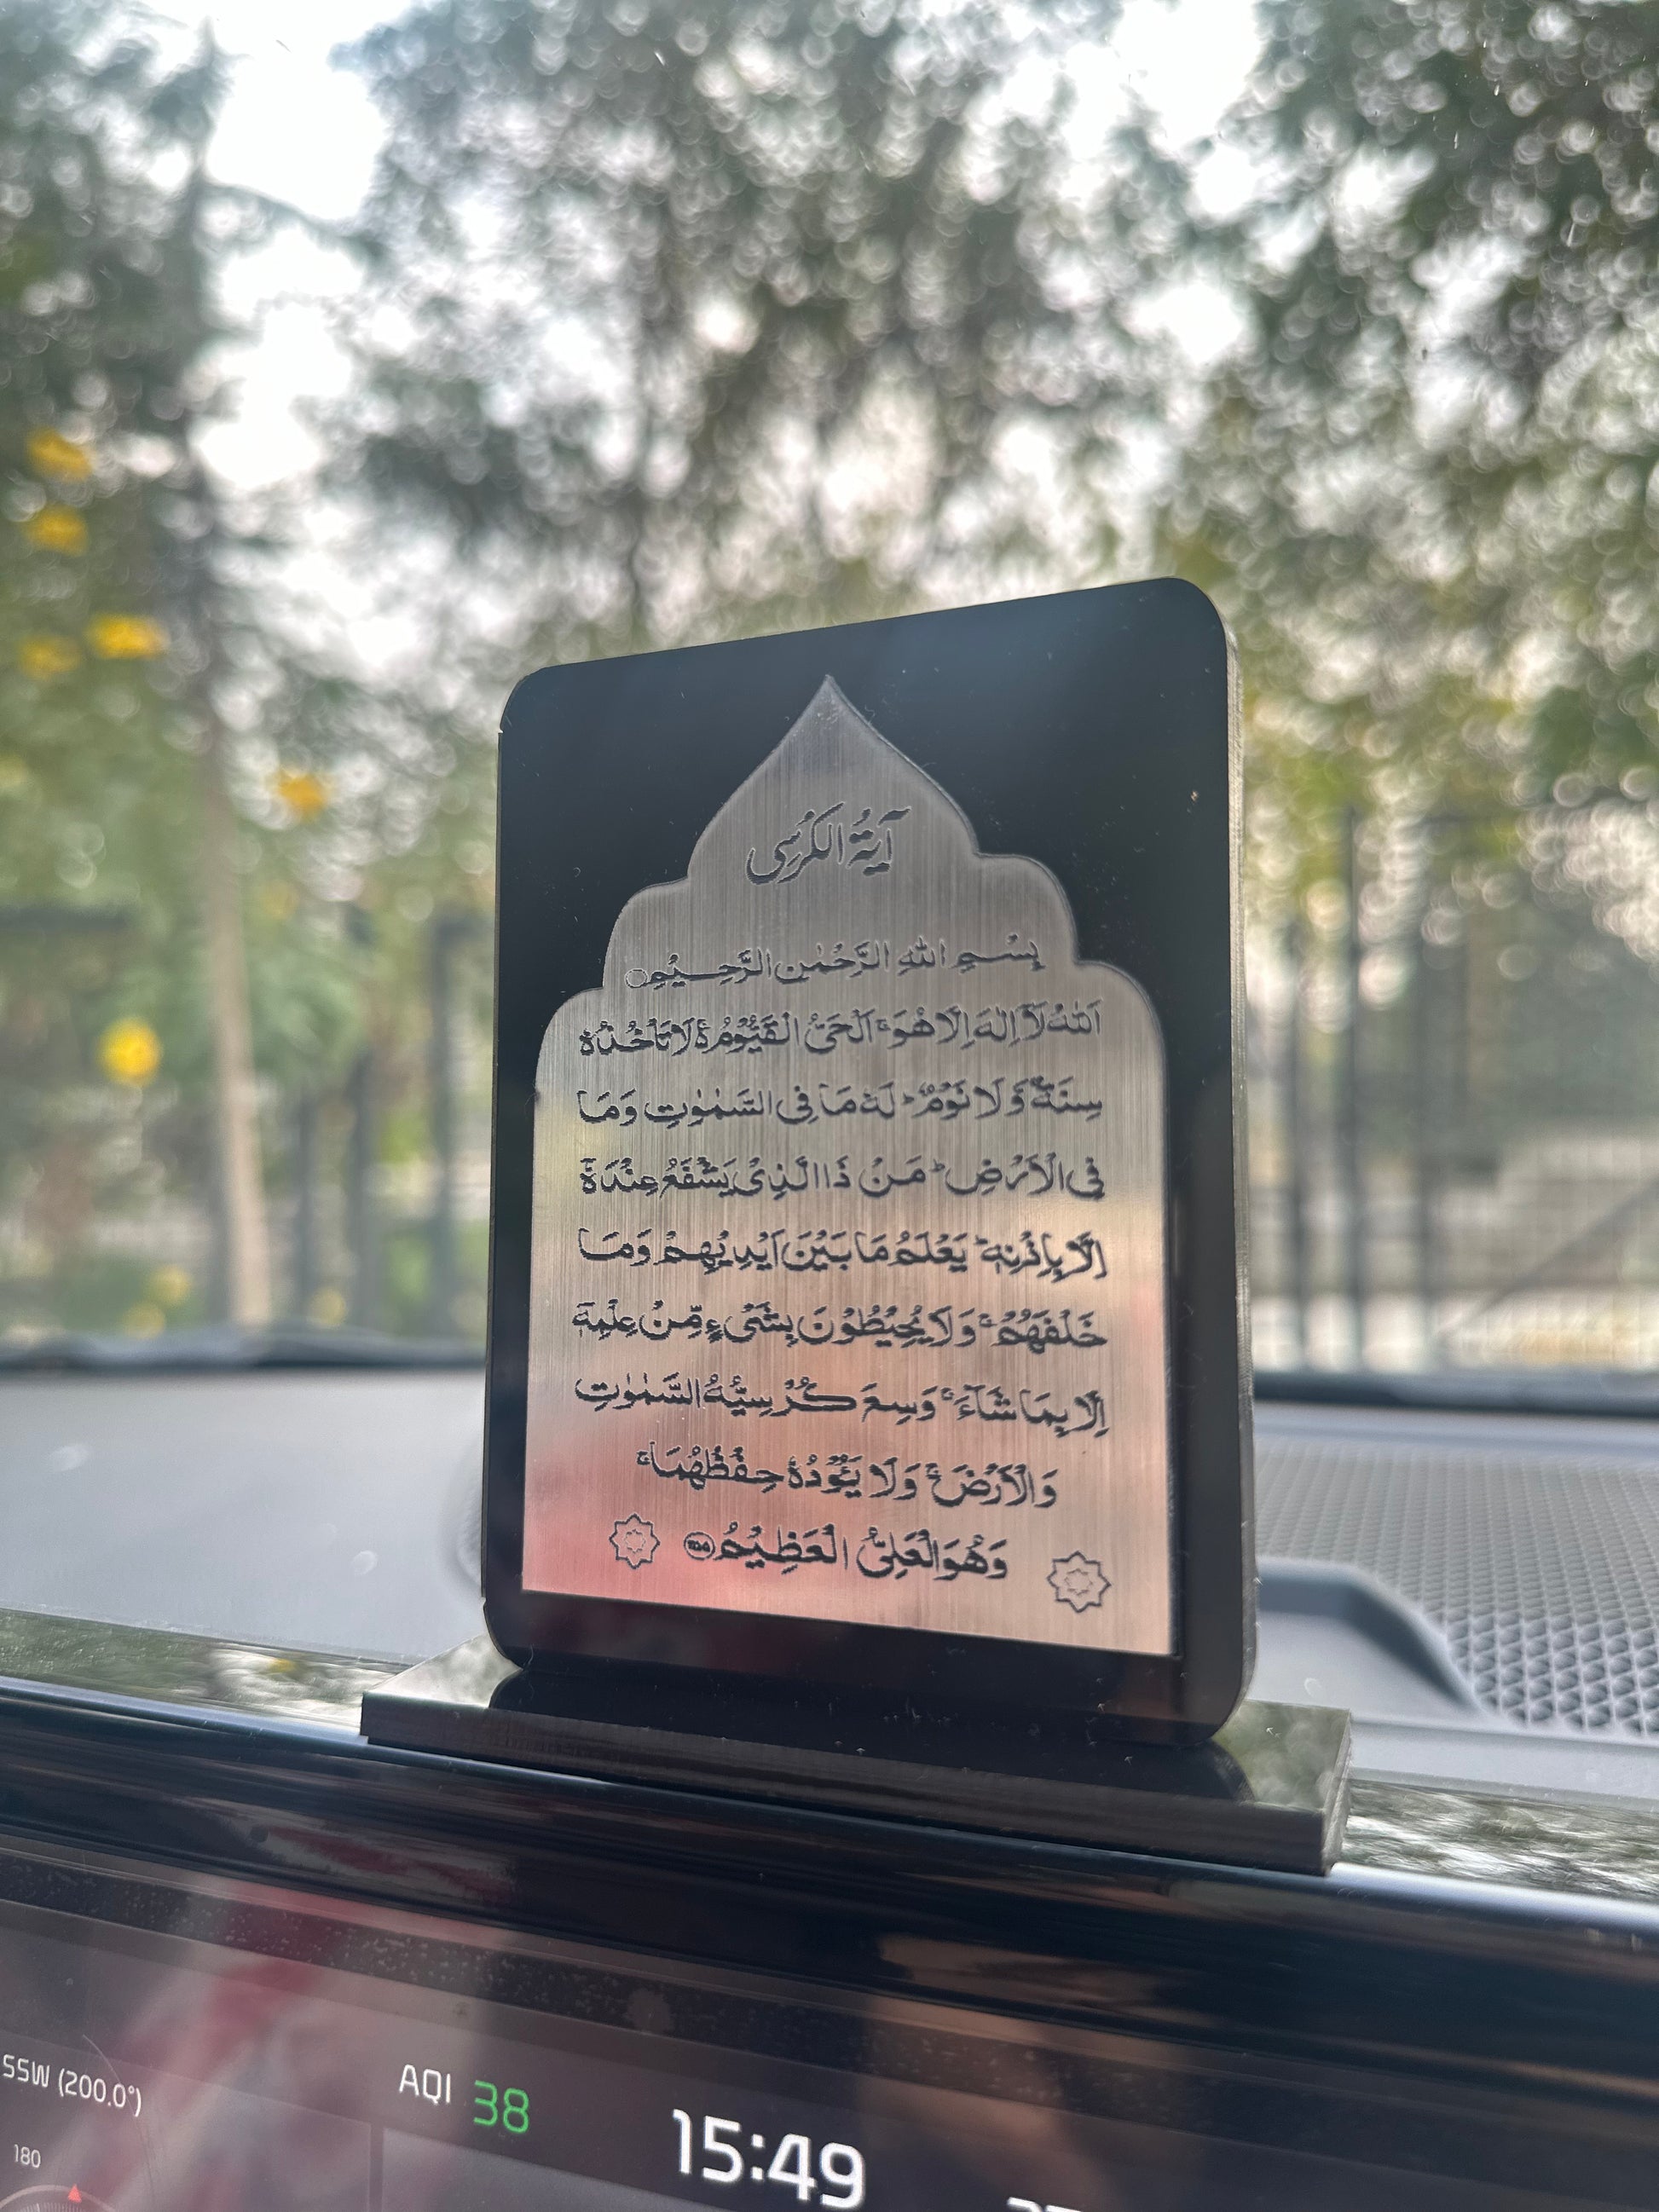 آيَةُ الكُرْسِى
بِسْــمِ اللهِ الرَّحْمٰنِ الرَّحِــيْمِ
اَللهُ لَآ اِلٰهَ اِلَّا هُوَ ۚ اَلْحَىُّ الْقَيُّوْمُ ۚ لَا تَاْخُذُهٗ
سِنَةٌ وَّلَا نَوْمٌ ؕ لَهٗ مَا فِى السَّمٰوٰتِ وَمَا
فِى الْاَرْضِ ؕ مَنْ ذَا الَّذِىْ يَشْفَعُ عِنْدَهٗۤ
اِلَّا بِاِذْنِهٖ ؕ يَعْلَمُ مَا بَيْنَ اَيْدِيْهِمْ وَمَا
خَلْفَهُمْ ۚ وَلَا يُحِيْطُوْنَ بِشَىْءٍ مِّنْ عِلْمِهٖۤ
اِلَّا بِمَا شَآءَ ۚ وَسِعَ كُرْسِيُّهُ السَّمٰوٰتِ
وَالْاَرْضَ ۚ وَلَا يَئُوْدُهٗ حِفْظُهُمَا ۚ
وَهُوَ الْعَلِىُّ الْعَظِيْمُ
SSW (200.0°)
AQI 38
15:49
180